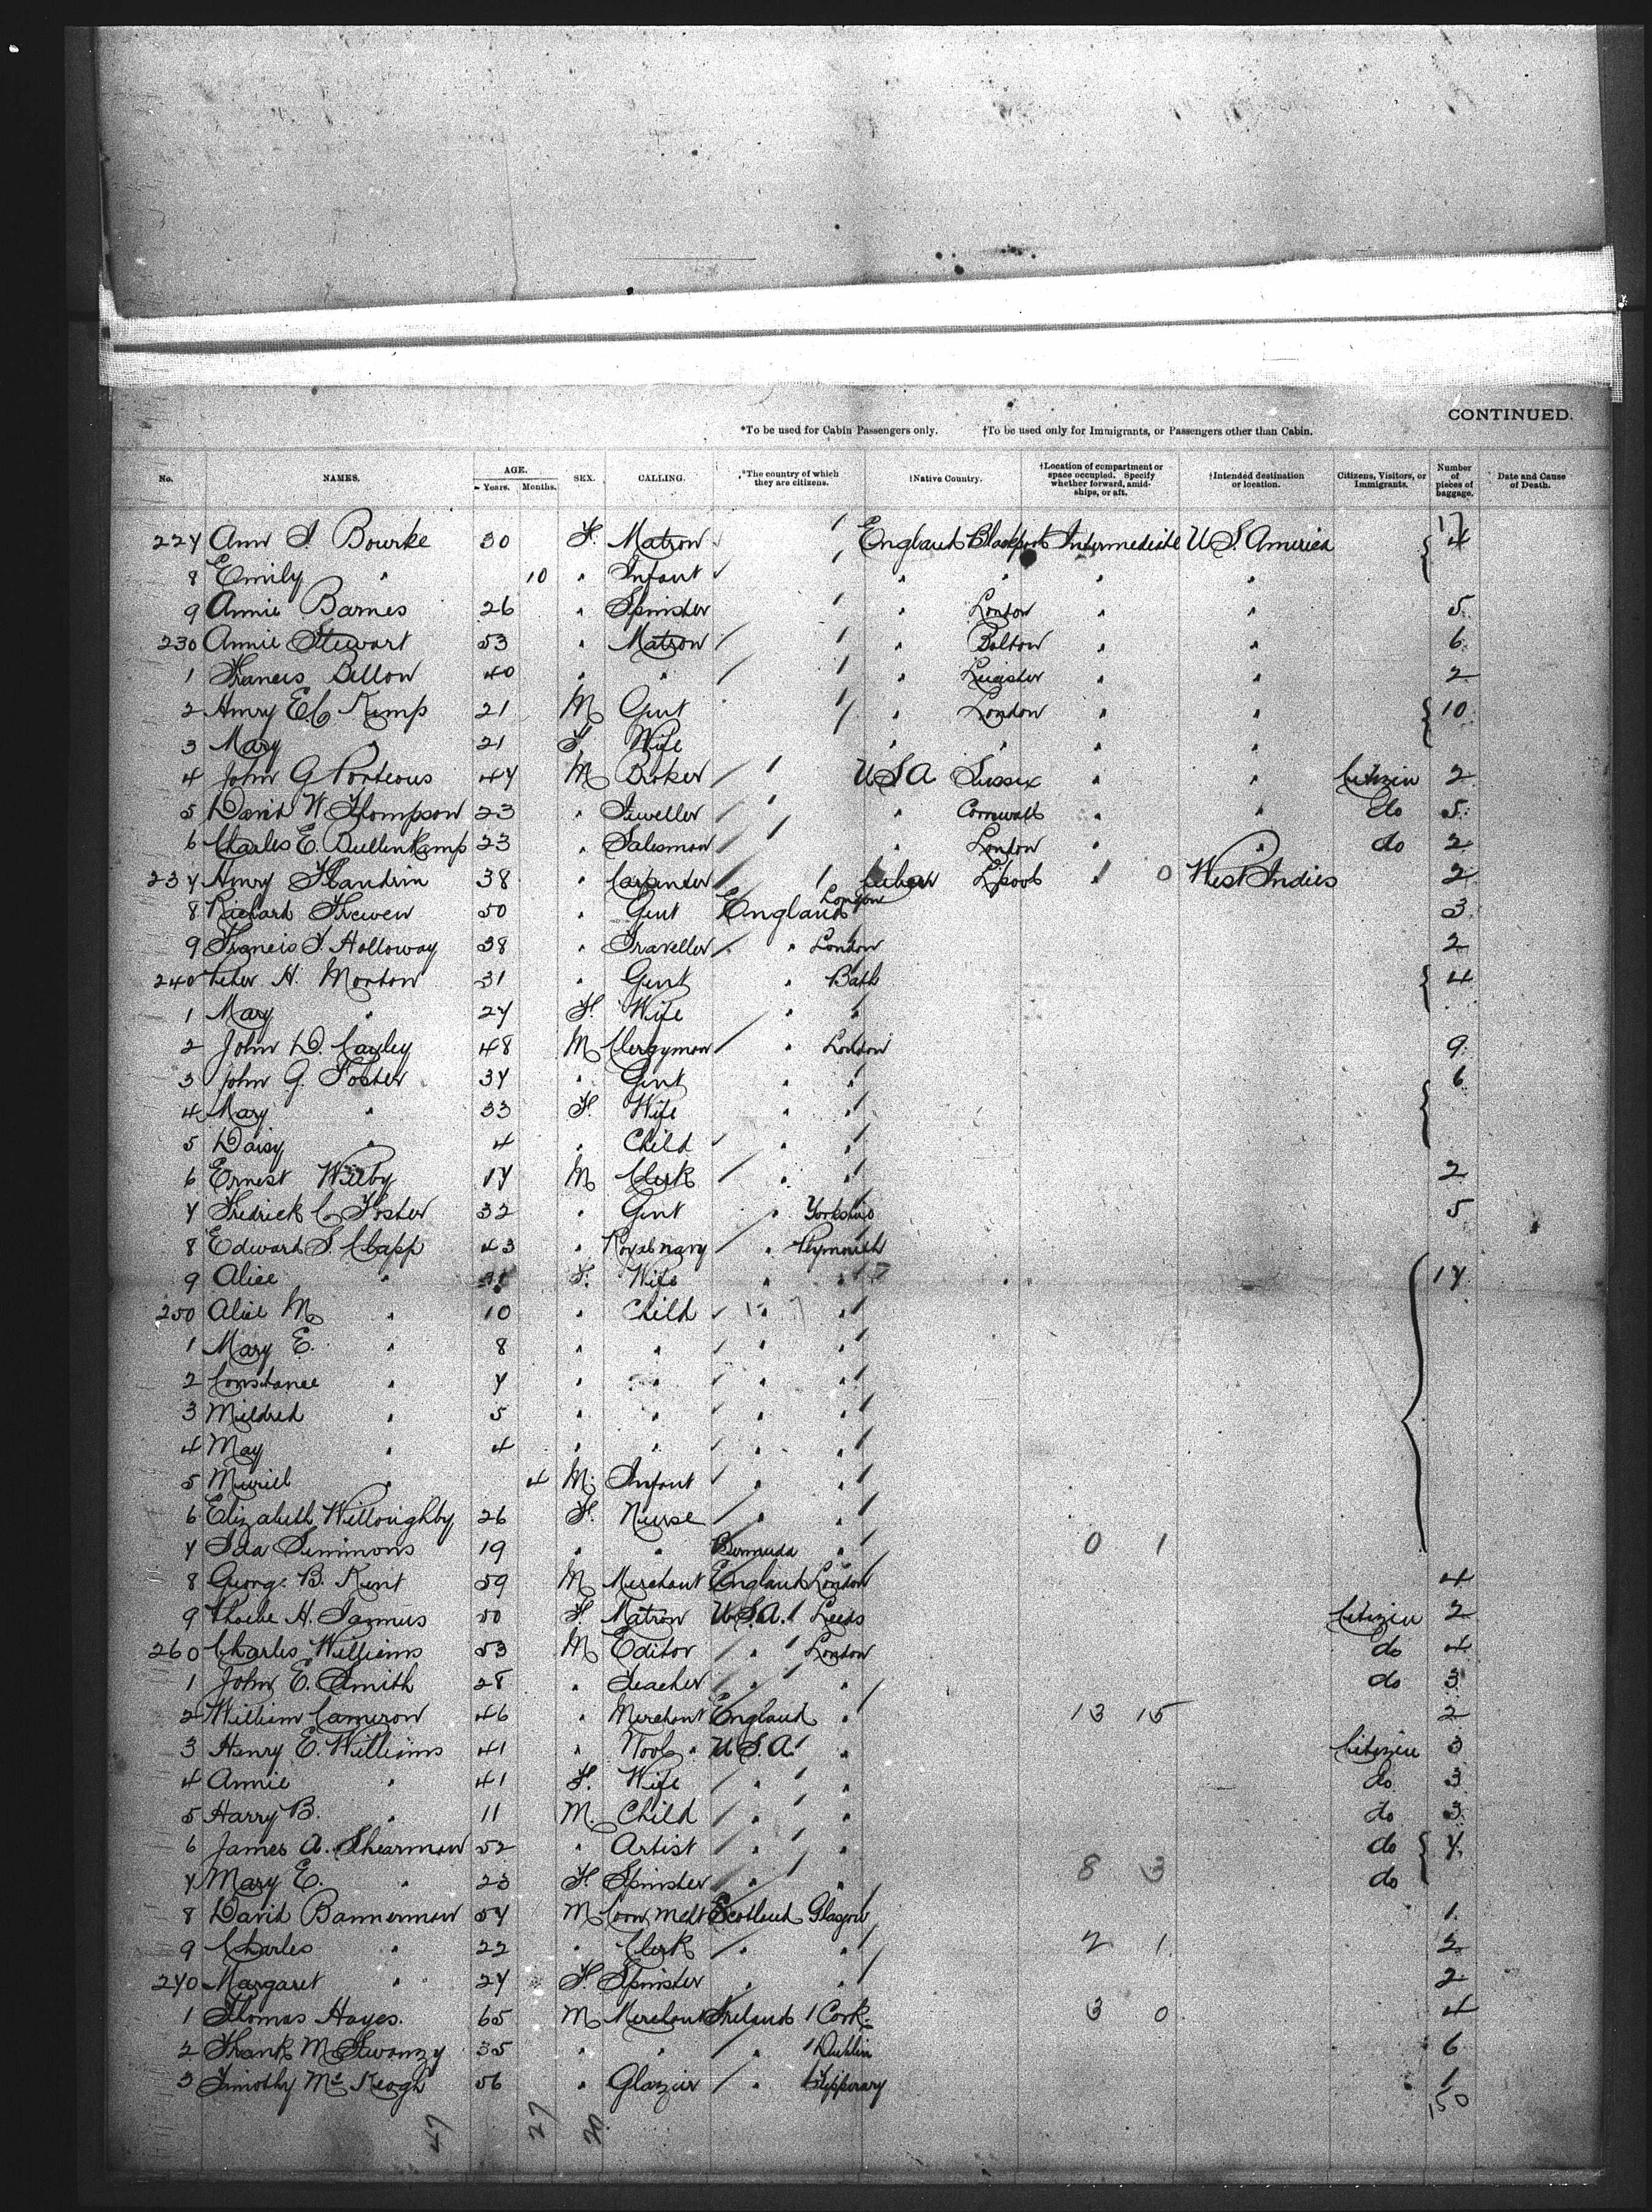 CONTINUED.
*To be used for Cabin Passengers only. †To be used only for Immigrants, or Passengers other than Cabin.
No. NAMES. AGE. Years. Months. SEX. CALLING. *The country of which they are citizens. †Native Country. †Location of compartment or space occupied. Specify whether forward, amidships, or aft. †Intended destination or location. Citizens, Visitors, or Immigrants. Number of pieces of baggage. Date and Cause of Death.
17
227 Ann S. Bourke 30 F. Matron England Intermediate U.S. America 4
8 Emily " 10 " Infant " " " "
9 Annie Barnes 26 " Spinster " London " " 5
230 Annie Stewart 53 " Matron " Bolton " " 6
1 Francis Dillon 40 " " " Leicister " " 2
2 Henry E C Kemp 21 M Gent " London " " 10
3 Mary " 21 F. Wife " " " "
4 John G Porteous 47 M Broker U S A Sussex " " Citizen 2
5 David W Thompson 23 " Jeweller " Cornwall " " do 5
6 Charles E. Bullenkamp 23 " Salesman " London " " do 2
237 Henry Flandrin 38 " Carpenter L'pool 1 0 West Indies 2
8 Richard Frewen 50 " Gent England London 3
9 Francis J. Holloway 38 " Traveller " London 2
240 Peter H. Morton 31 " Gent " Bath 4
1 Mary " 27 F. Wife " "
2 John D. Cayley 48 M Clergyman " London 9
3 John G. Foster 37 " Gent " " 6
4 Mary " 33 F. Wife " "
5 Daisy " 4 " Child " "
6 Ernest Wilby 17 M Clerk " " 2
7 Fredrick C. Foster 32 " Gent " Yorkshire 5
8 Edward S. Clapp 43 " Royal navy " Plymouth
9 Alice " F. Wife " " 17
250 Alice M " 10 " Child " "
1 Mary E. " 8 " " " "
2 Constance " 7 " " " "
3 Mildred " 5 " " " "
4 May " 4 " " " "
5 Muriel " 4 M. Infant " "
6 Elizabeth Willoughby 26 F. Nurse " "
7 Ida Simmons 19 " " Bermuda " 0 1
8 George B. Kent 59 M Merchant England London 4
9 Phoebe H. Iammus 50 F. Matron U.S.A. Leeds Citizen 2
260 Charles Williams 53 M Editor " London do 4
1 John E. Smith 28 " Teacher " " do 3
2 William Cameron 46 " Merchant England " 13 15 2
3 Henry E. Williams 41 " Wool " U.S.A. " Citizen 3
4 Annie " 41 F. Wife " " do 3
5 Harry B. " 11 M. Child " " do 3
6 James A. Shearman 52 " Artist " " do 7
7 Mary E. " 23 F. Spinster " " 8 3 do
8 David Bannerman 57 M Com Mcht Scotland Glasgow 1
9 Charles " 22 " Clerk " " 2 1 2
270 Margaret " 27 F. Spinster " " 2
1 Thomas Hayes. 65 M Merchant Ireland Cork 3 0 4
2 Frank M Swanzy 35 " " " Dublin 6
3 Timothy Mc Keogh 56 " Glazier " Tipperary 1
150
47 27 20